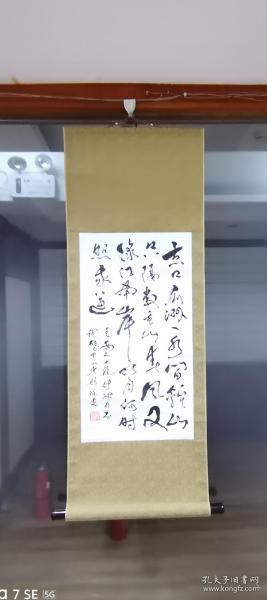 京口瓜洲一水间钟山
只隔数重山春风又
绿江南岸明月何时
照我还
王安石
a 7 SE | 5G
孔夫子旧书网